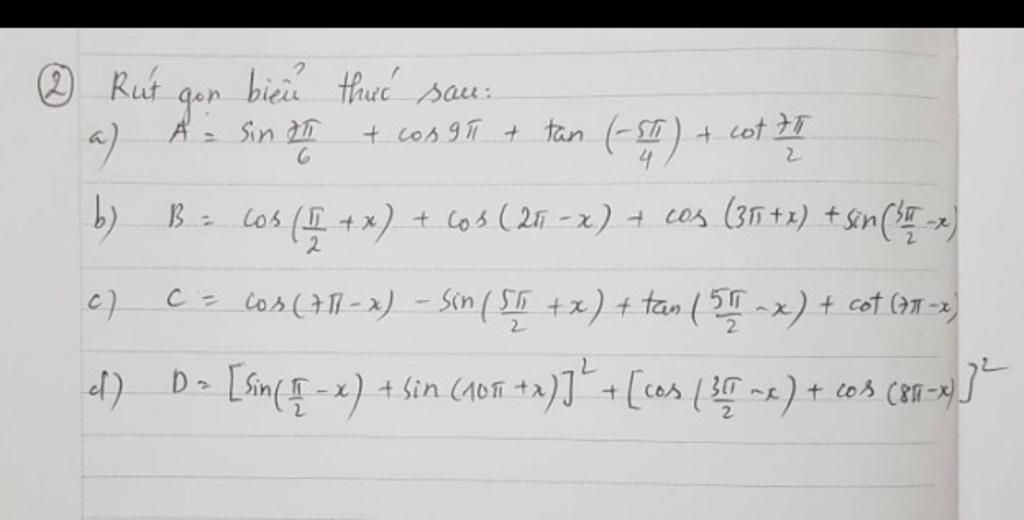 ② Rút gọn biểu thức sau:
a) A = sin 7π/6 + cos 9π + tan (-5π/4) + cot 7π/2
b) B = cos(π/2 + x) + cos(2π - x) + cos (3π + x) + sin(3π/2 - x)
c) C = cos(7π - x) - sin(5π/2 + x) + tan(5π/2 - x) + cot (7π - x)
d) D = [sin(π/2 - x) + sin (10π + x)]² + [cos (3π/2 - x) + cos (8π - x)]²